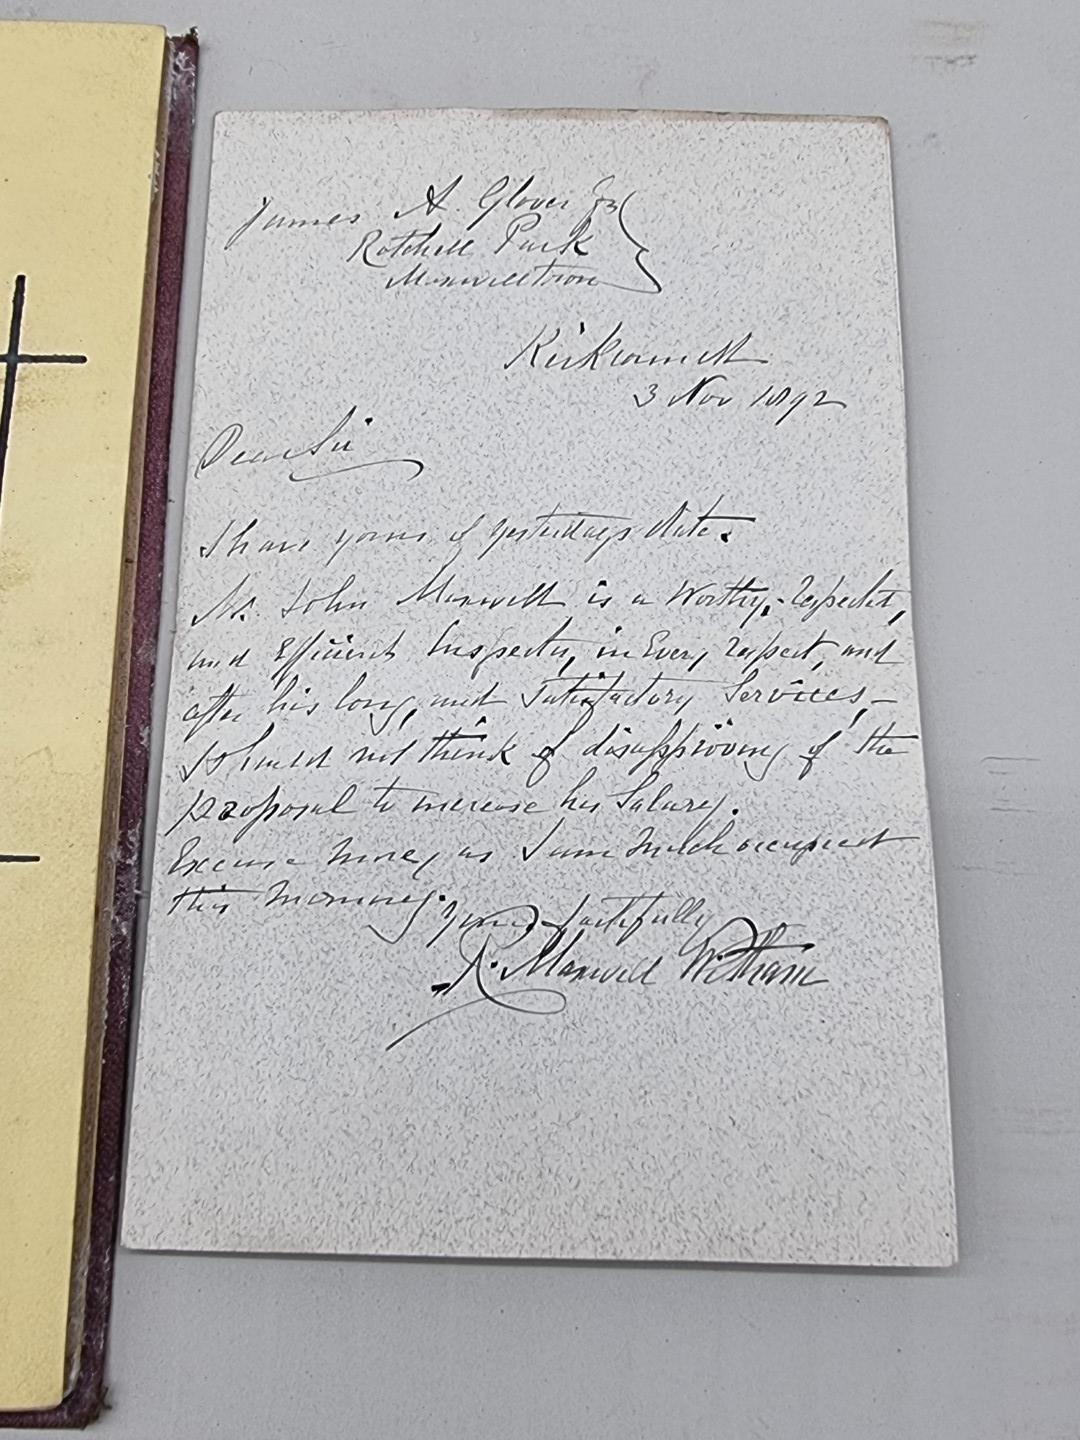 James A. Glover Esq
Rotchell Park
Maxwelltown
Kirkconnell
3 Nov 1892
Dear Sir
I have yours of yesterdays date.
Mr. John Maxwell is a Worthy,
and Efficient Inspector, in Every respect, and
after his long, and Satisfactory Services,—
I should not think of disapproving of the
proposal to increase his Salary.
Excuse more, as I am Much occupied
this Morning.
Yours faithfully
R. Maxwell Witham